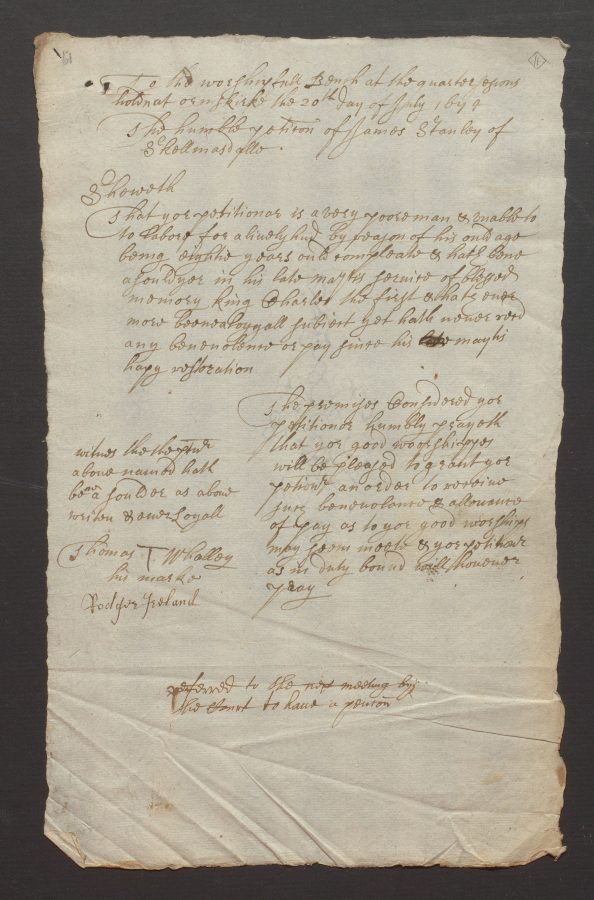 To the worshipfull Bench at the quarter sesions
holden at ormskirke the 20th day of July
The humble petition of James Stanley of
Skellmasdalle
Showeth
That yor petitionar is a very poore man & unable to
to labore for a livelyhud by reason of his ould age
being eightie years ould compleate & hath bene
a souldyer in his late maytis service of blessed
memory King Charles the first & hath ever
more beene a loyall subiect yet hath never recd
any benevolence or pay since his late maytis
hapy restoration
The premises Considered yor
petitionar humbly prayeth
that yor good woorshippes
will be pleased to grant yor
petionr an order to receive
such benevolence & allowance
of pay as to yor good worships
may seem meete & yor petitionar
as in duty bound will for ever
pray
witnes the the petir
above named hath
bene a soulder as above
writen & ever loyall
Thomas T Whalley
his marke
Rodger Ireland
referred to the next meeting by
the Court to have a pencon